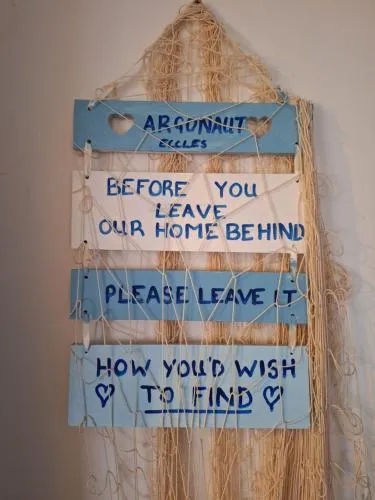 ARGONAUT
ECCLES
BEFORE YOU
LEAVE
OUR HOME BEHIND
PLEASE LEAVE IT
HOW YOU'D WISH
♡ TO FIND ♡